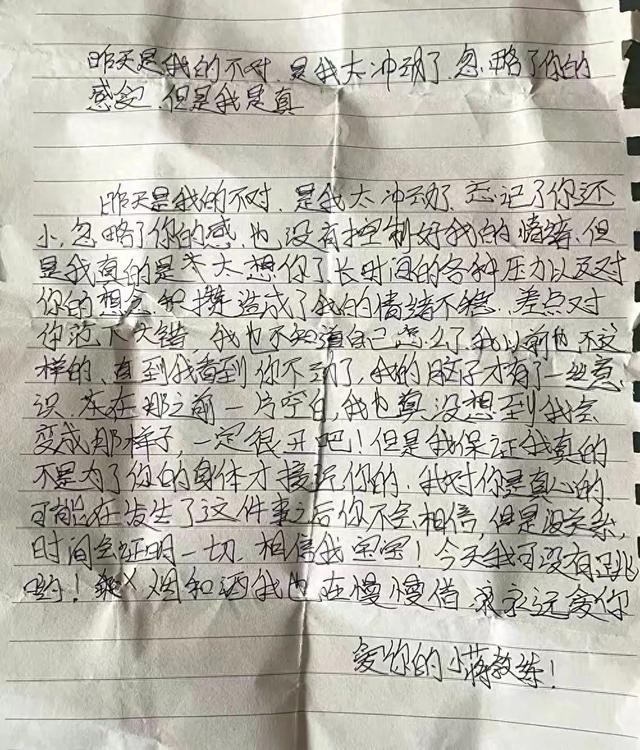 昨天是我的不对,是我太冲动了,忽略了你的
感实 但是我是真
昨天是我的不对,是我太冲动了,忘记了你还
小,忽略了你的感,也没有控制好我的情绪,但
是我真的是太想你了长时间的各种压力以及对
你的想念积攒造成了我的情绪不稳,差点对
你范下大错,我也不知道自己怎么了,我以前也不这
样的,直到我看到你不动了,我的脑子才有了一丝意
识,在那之前一片空白,我也真没想到我会
变成那样子,一定很丑吧!但是我保证我真的
不是为了你的身体才接近你的,我对你是真心的,
可能在发生了这件事之后你不会相信,但是没关系,
时间会证明一切,相信我宝宝!今天我可没有
哟!烟和酒我也在慢慢借,永远爱你
爱你的小蒋教练!